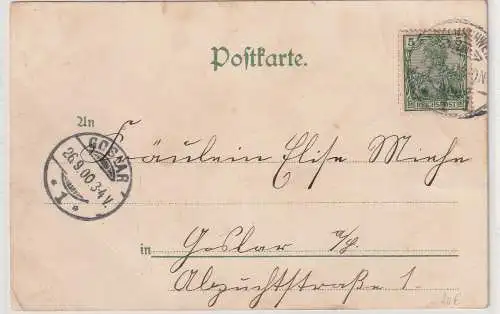 Postkarte.
5
REICHSPOST
An
Fräulein Elise Miehe
GOSLAR
26.9.00.3-4V.
* 1 *
in Goslar a/h.
Abzuchtstraße 1.